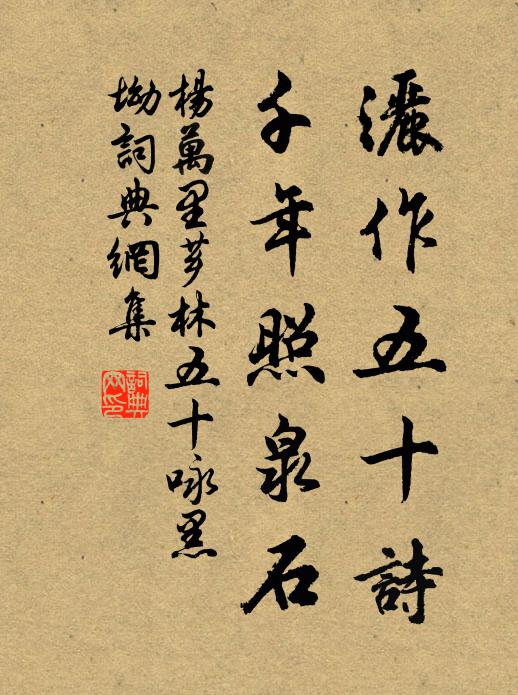 灑作五十詩
千年照泉石
楊萬里芗林五十咏墨
坳詞典網集
詞典網印